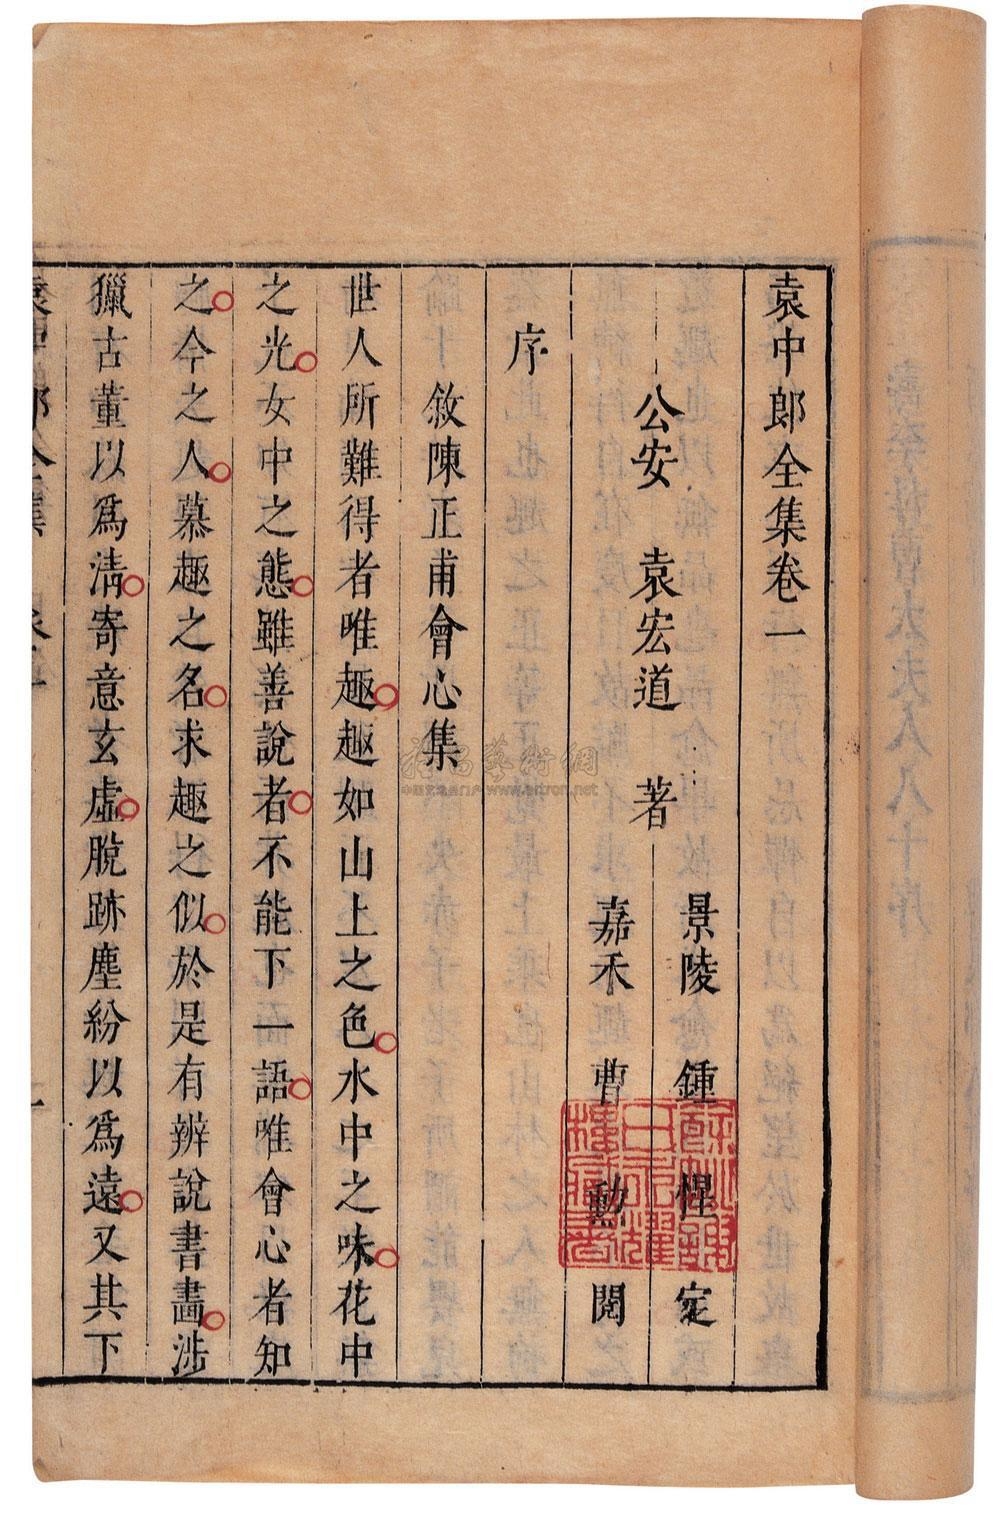 袁中郎全集卷一
景陵 鍾惺 定
公安 袁宏道 著
嘉禾 曹勳 閱
序
敘陳正甫會心集
世人所難得者唯趣趣如山上之色水中之味花中
之光女中之態雖善說者不能下一語唯會心者知
之今之人慕趣之名求趣之似於是有辨說書畵涉
獵古董以爲淸寄意玄虛脫跡塵紛以爲遠又其下